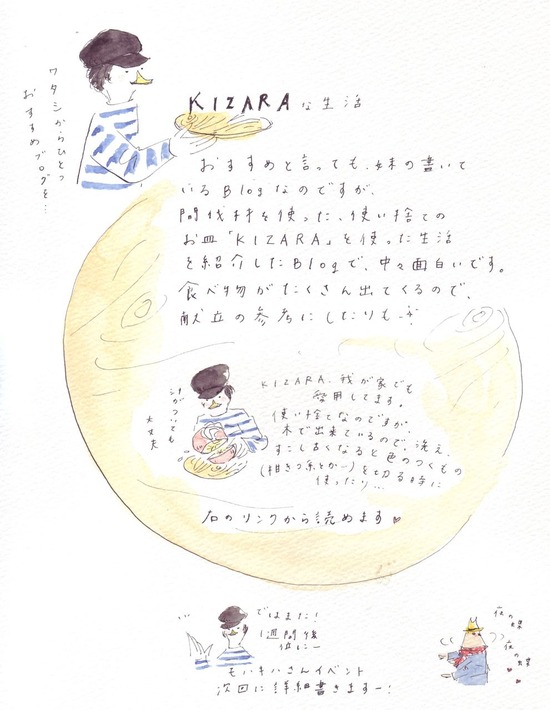 ワタシからひとつ
おすすめブログを…
KIZARAな生活
おすすめと言っても、妹の書いて
いるBlogなのですが、
間伐材を使った、使い捨ての
お皿「KIZARA」を使った生活
を紹介したBlogで、中々面白いです。
食べ物がたくさん出てくるので、
献立の参考にしたりも
汁がついても
大丈夫
KIZARA、我が家でも
愛用してます。
使い捨てなのですが、
木で出来ているので、洗え、
すこし古くなると色のつくもの
(柑きつ系とかー)を切る時に
使ったり…
右のリンクから読めます
…
ではまた!
1週間後
位にー
モハキハさんイベント
次回に詳細書きますー!
夜の蝶
夜の蝶